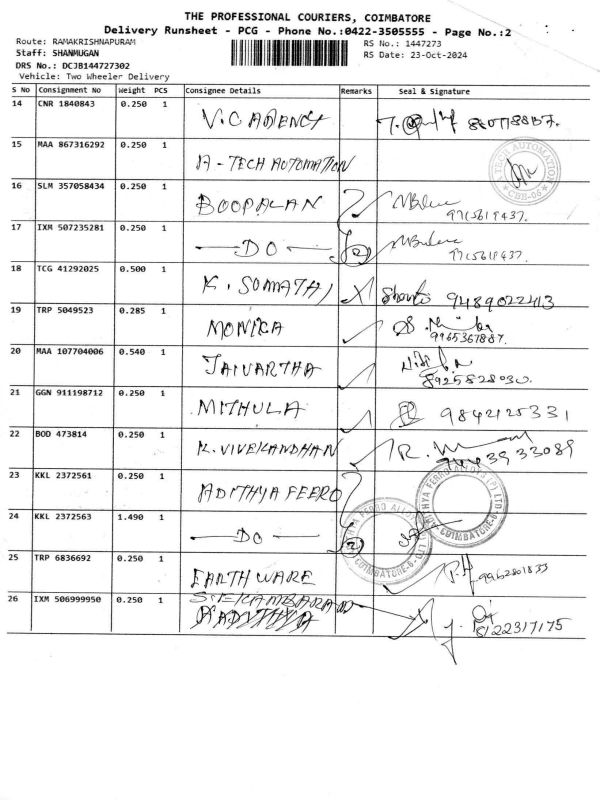 THE PROFESSIONAL COURIERS, COIMBATORE
Delivery Runsheet - PCG - Phone No.:0422-3505555 - Page No.:2
Route: RAMAKRISHNAPURAM RS No.: 1447273
Staff: SHANMUGAN RS Date: 23-Oct-2024
DRS No.: DCJB144727302
Vehicle: Two Wheeler Delivery
S No Consignment No Weight PCS Consignee Details Remarks Seal & Signature
14 CNR 1840843 0.250 1 V.C AGENCY
15 MAA 867316292 0.250 1 A-TECH AUTOMATION
A TECH AUTOMATION CBE-06
16 SLM 357058434 0.250 1 BOOPALAN 9715619437.
17 IXM 507235281 0.250 1 —DO— (2) 9715619437.
18 TCG 41292025 0.500 1 K. SOMATHI 9489022413
19 TRP 5049523 0.285 1 MONIKA 9965367887.
20 MAA 107704006 0.540 1 JAIVARTHA 8925828030.
21 GGN 911198712 0.250 1 MITHULA 9842125331
22 BOD 473814 0.250 1 K. VIVEKANDHAN
23 KKL 2372561 0.250 1 ADITHYA FEERO
24 KKL 2372563 1.490 1 —DO— (2)
COIMBATORE-6
COIMBATORE-6
25 TRP 6836692 0.250 1 EARTHWARE
26 IXM 506999950 0.250 1 8122317175